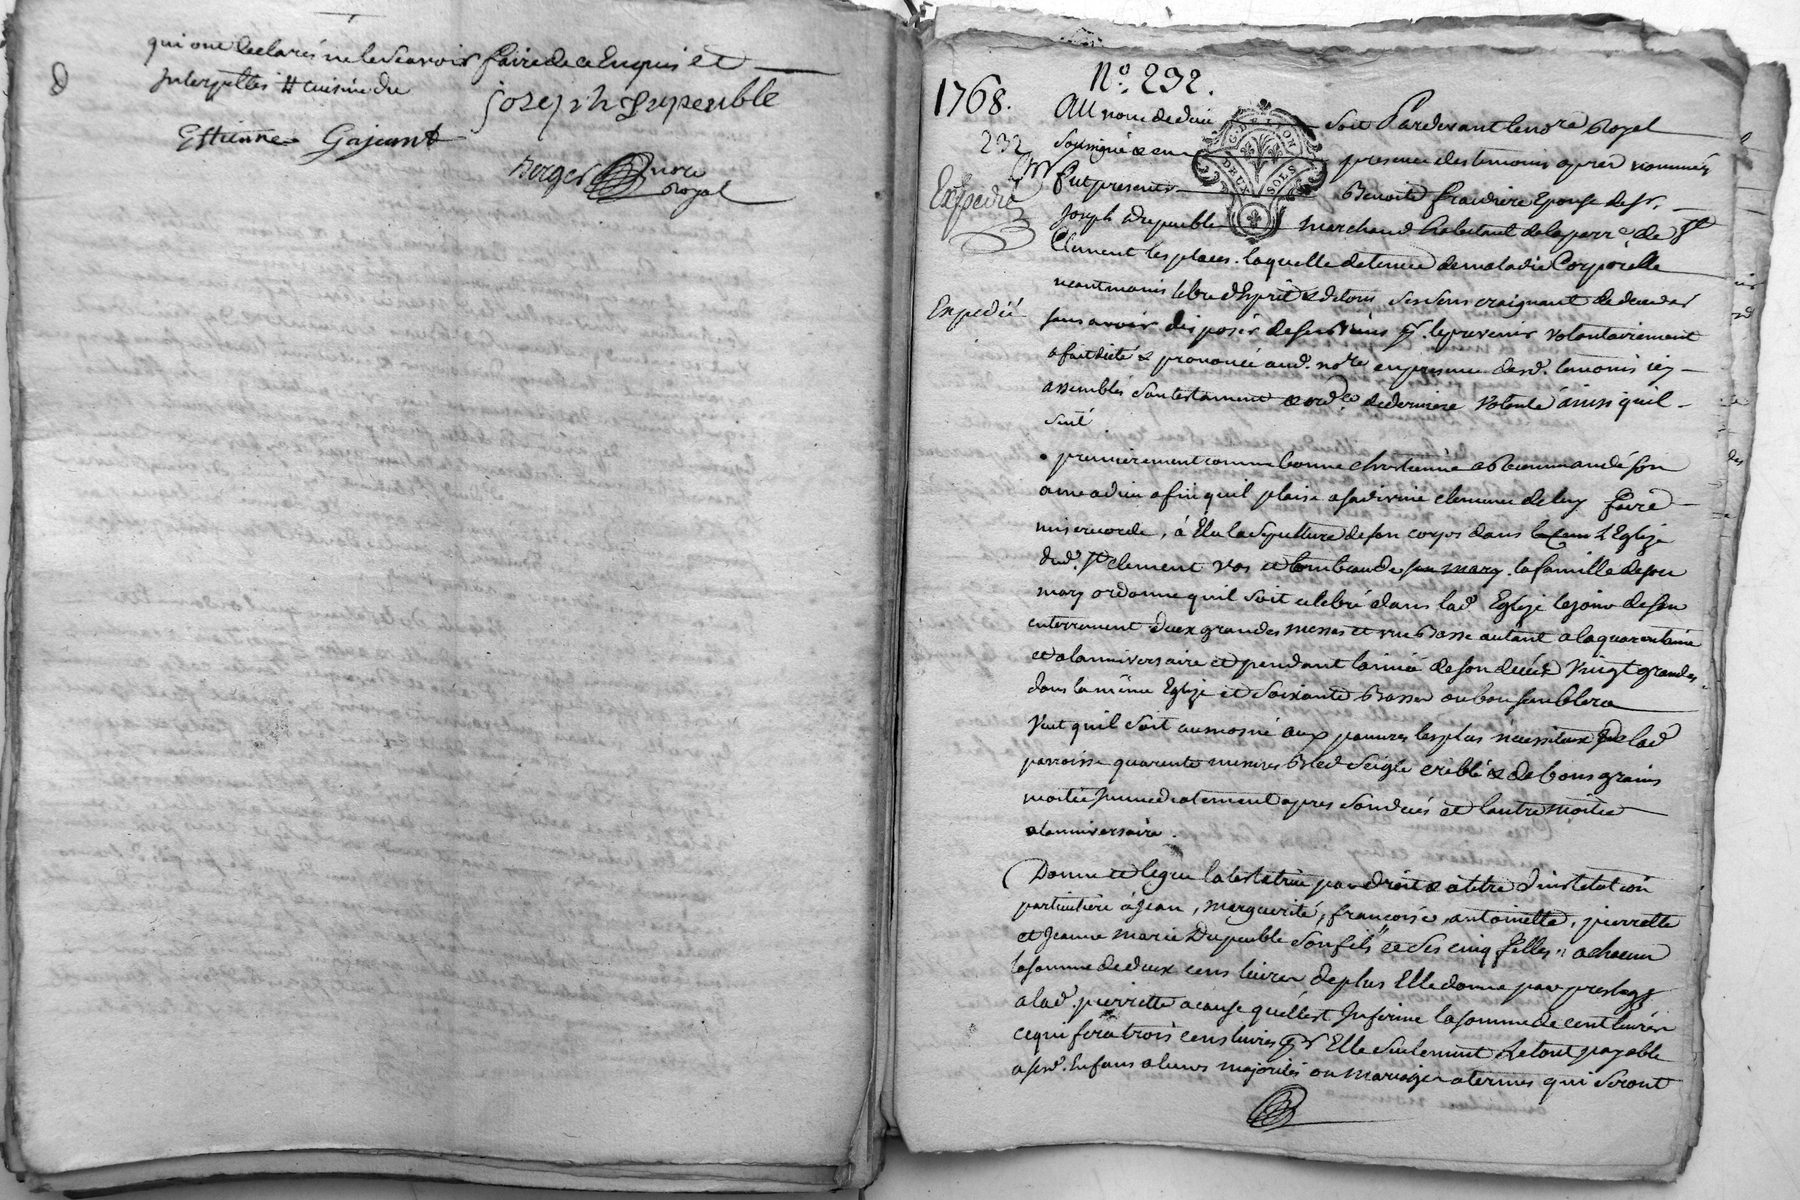 qui ont declarés ne le scavoir faire de ce Enquis et
Interpellés # cuisine du
Joseph Dupeuble
Estienne Gajeant
Berger nore
Royal
1768.
No. 292.
Au nom de dieu soit Pardevant le nore Royal
232
soussigné & en presence des temoins apres nommés
Expedié
fut presente Benoite fraidiere Epouse de Sr.
Joseph Dupeuble marchand habitant de la parre de St
Clement les places. laquelle detenue de maladie Corporelle
neantmoins libre d'Esprit & de tous ses sens craignant de deceder
Expedié
sans avoir disposé de ses biens pr. le prevenir volontairement
a fait dicté & prononcé aud. nore en presence desd. temoins icy
assemblés son testament & ordce de derniere volonté ainsi quil
suit
premierement comme bonne chretienne a Recommandé son
ame a dieu afin quil plaise a sa divine clemence de luy faire
misericorde, à Elu la sepulture de son corps dans l'Eglize
dud. St clement vas et tombeau de la famille de son
mary ordonne quil soit celebré dans lad Eglize le jour de son
enterrement deux grandes messes et une Basse autant a la quarantaine
et a l'anniversaire et pendant l'année de son decéz vingt grandes
dans la même Eglize et soixante Basses ou bon semblera
Veut quil soit aumosné aux pauvres les plus necessiteux de lad
parroisse quarente mesures Bled seigle criblé & de bons grains
moitié immediatement apres son decés et l'autre moitié
a l'anniversaire.
Donne et legue la testatrice par droit & a titre d'institution
particuliere à Jean, marguerite, francoise, antoinette, pierrette
et Jeanne marie Dupeuble son fils et ses cinq filles a chacun
la somme de deux cens livres de plus Elle donne par prelegz
a lad. pierrette a cause quelle est Infirme la somme de cent livres
ce qui fera trois cens livres pr Elle seulement le tout payable
a sesd. Enfans a leurs majorités ou mariages a termes qui seront